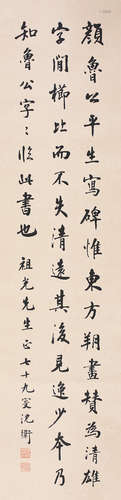 顏魯公平生寫碑惟東方朔畫贊為清雄
字間櫛比而不失清遠其後見逸少本乃
知魯公字字臨此書也 祖光先生正 七十九叟沈衛